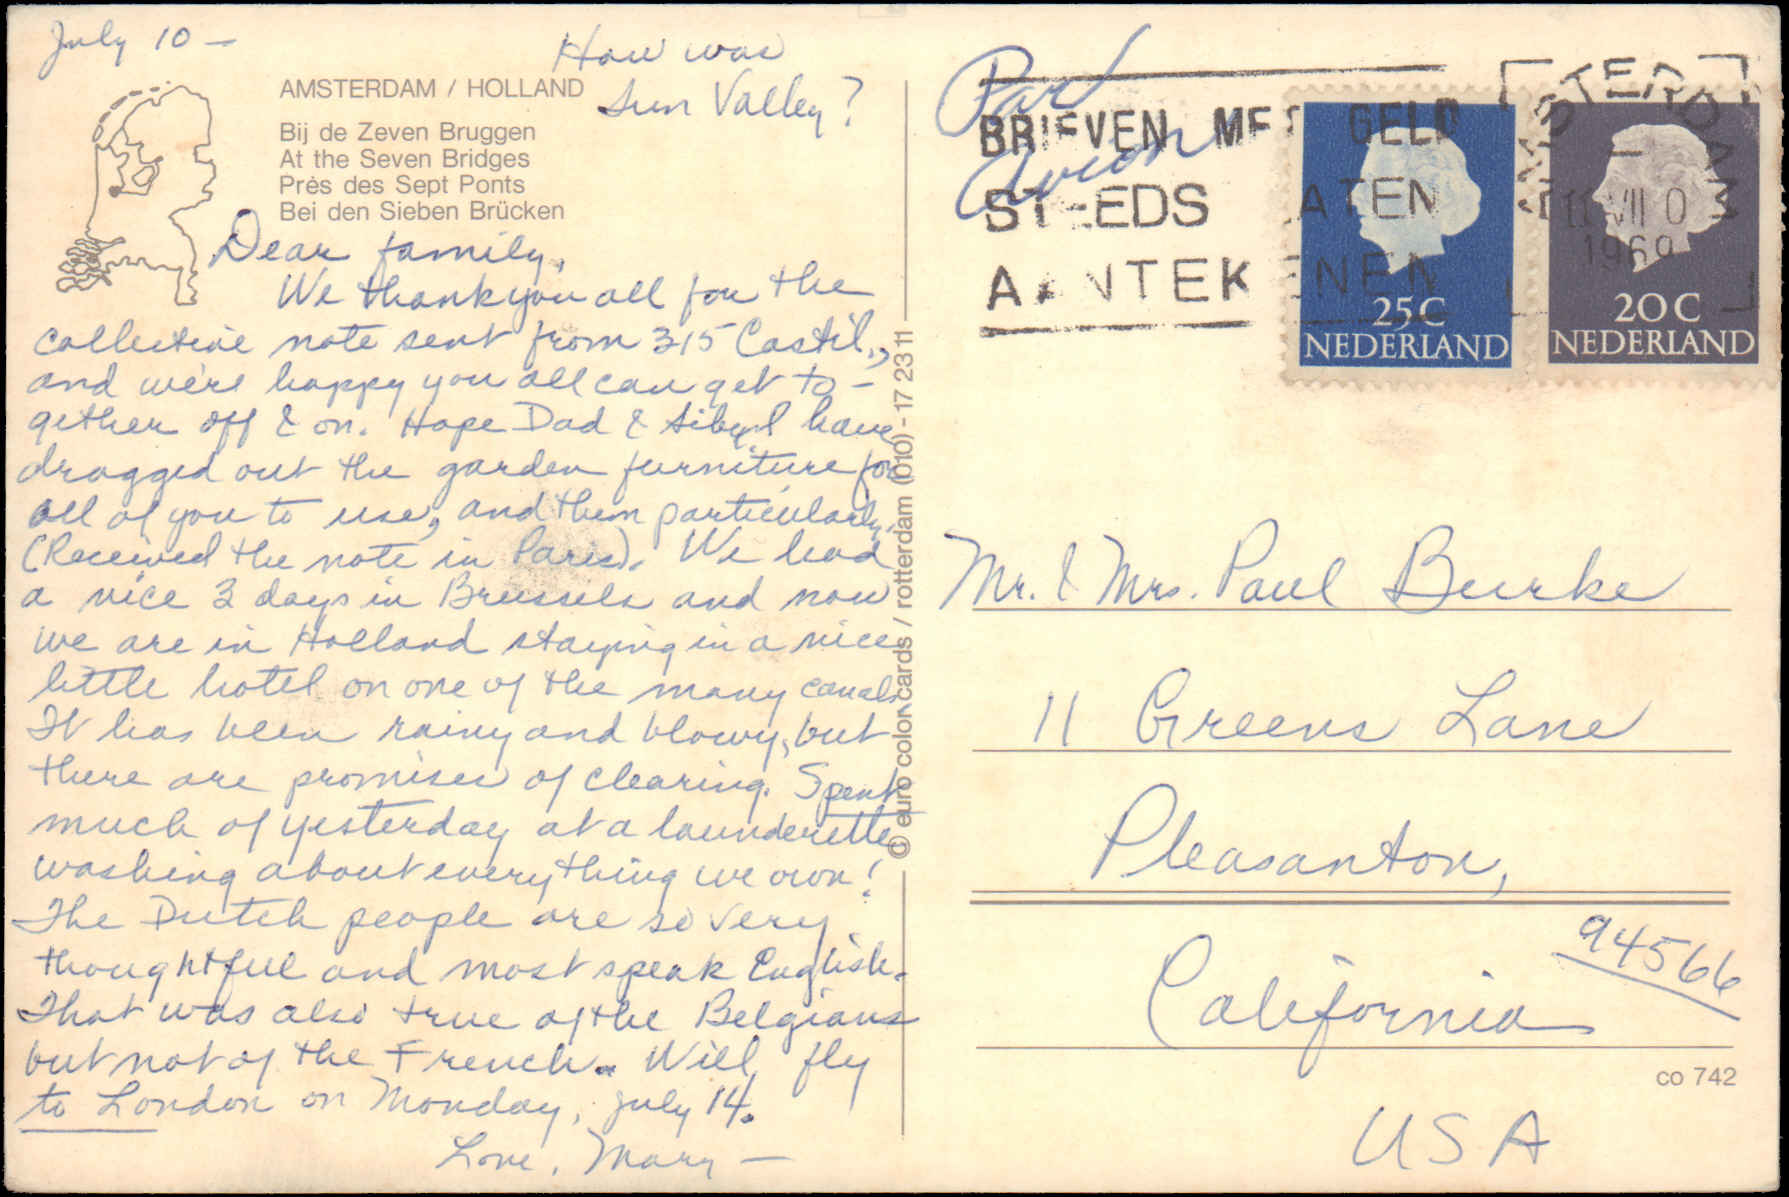 July 10 -
How was
Sun Valley?
AMSTERDAM / HOLLAND
Bij de Zeven Bruggen
At the Seven Bridges
Près des Sept Ponts
Bei den Sieben Brücken
Dear family,
We thank you all for the
collective note sent from 315 Castil.,
and we're happy you all can get to-
gether off & on. Hope Dad & Sibyl have
dragged out the garden furniture for
all of you to use, and them particularly.
(Received the note in Paris). We had
a nice 3 days in Brussels and now
we are in Holland staying in a nice
little hotel on one of the many canals.
It has been rainy and blowy, but
there are promises of clearing. Spent
much of yesterday at a launderette
washing about everything we own!
The Dutch people are so very
thoughtful and most speak English.
That was also true of the Belgians
but not of the French. Will fly
to London on Monday, July 14.
Love, Mary -
© euro color cards / rotterdam (010) - 17 23 11
Par
Avion
BRIEVEN MET GELD
STEEDS LATEN
AANTEKENEN
AMSTERDAM
11 VII 0
1969
25C
NEDERLAND
20C
NEDERLAND
Mr. & Mrs. Paul Burke
11 Greens Lane
Pleasanton,
California
94566
co 742
USA